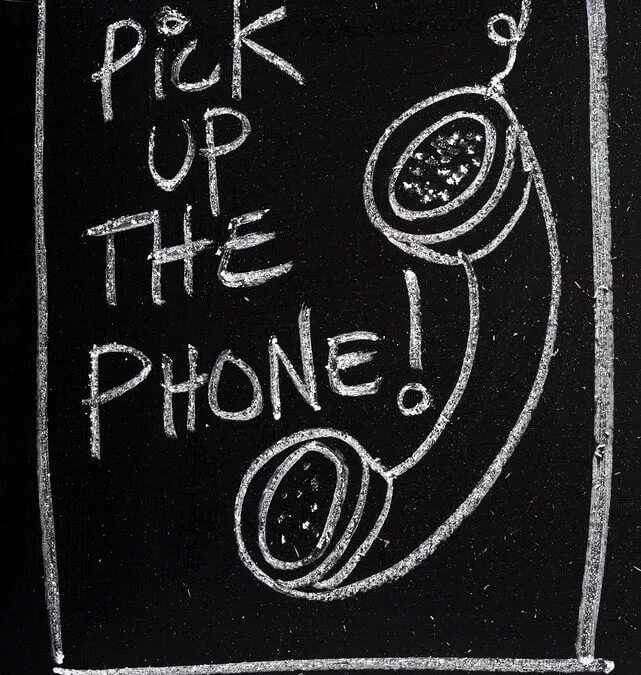 PiCK
UP
THE
PHONE!